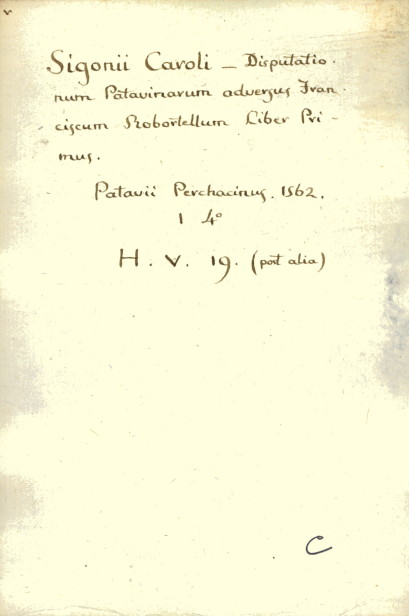 Sigonii Caroli — Disputatio-
num Patavinarum adversus Fran-
ciscum Robortellum Liber Pri-
mus.
Patavii Perchacinus. 1562.
1 4°
H. V. 19. (post alia)
C